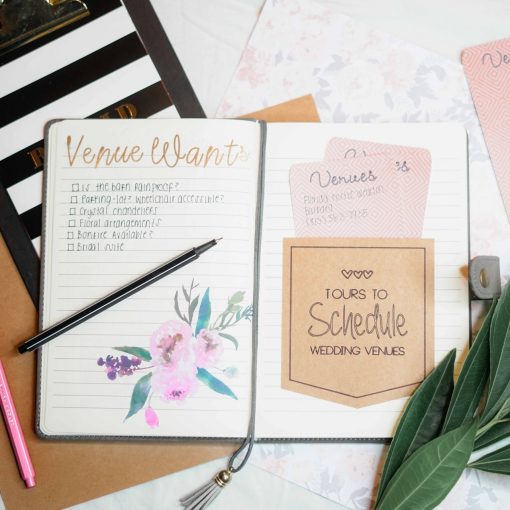 Venue Wants
Is the barn rainproof?
Parking-lot wheelchair accessible?
Crystal chandeliers
Floral arrangements
Bonfire Available?
Bridal suite
Venues
TOURS TO
Schedule
WEDDING VENUES